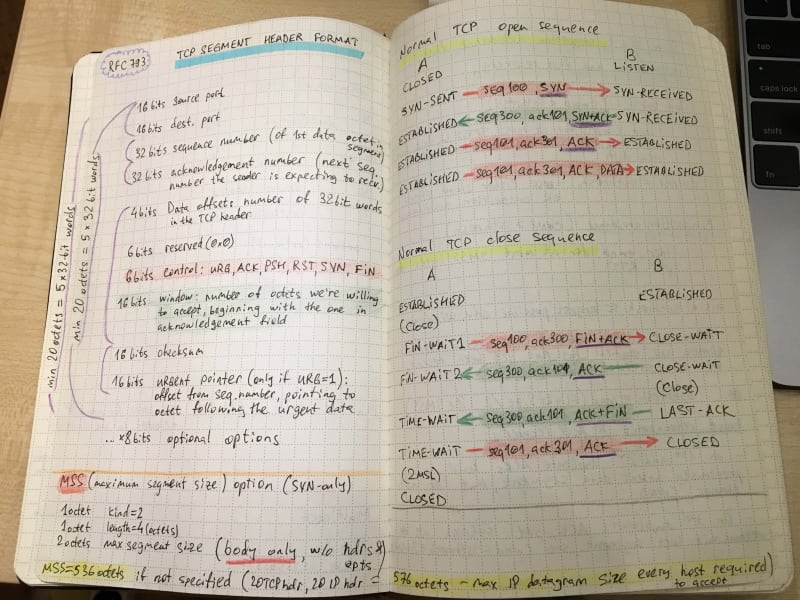 RFC 793
TCP SEGMENT HEADER FORMAT
16 bits source port
16 bits dest. port
32 bits sequence number (of 1st data octet in
segment)
32 bits acknowledgement number (next seq.
number the sender is expecting to recv.)
4 bits Data offsets number of 32 bit words
in the TCP header
6 bits reserved (0x0)
6 bits control: URG, ACK, PSH, RST, SYN, FIN
16 bits window: number of octets we're willing
to accept, beginning with the one in
acknowledgement field
16 bits checksum
16 bits urgent pointer (only if URG=1):
offset from seq. number, pointing to
octet following the urgent data
... x8 bits optional options
min 20 octets = 5 x 32-bit words
min 20 octets = 5 x 32 bit words
MSS (maximum segment size) option (SYN-only)
1 octet kind=2
1 octet length=4 (octets)
2 octets max segment size (body only, w/o hdrs &
opts)
MSS=536 octets if not specified (20 TCP hdr, 20 IP hdr =
Normal TCP open sequence
A B
CLOSED LISTEN
SYN-SENT seq100, SYN SYN-RECEIVED
ESTABLISHED seq300, ack101, SYN+ACK SYN-RECEIVED
ESTABLISHED seq101, ack301, ACK ESTABLISHED
ESTABLISHED seq101, ack301, ACK, DATA ESTABLISHED
Normal TCP close sequence
A B
ESTABLISHED ESTABLISHED
(Close)
FIN-WAIT1 seq100, ack300, FIN+ACK CLOSE-WAIT
FIN-WAIT2 seq300, ack101, ACK CLOSE-WAIT
(Close)
TIME-WAIT seq300, ack101, ACK+FIN LAST-ACK
TIME-WAIT seq101, ack301, ACK CLOSED
(2MSL)
CLOSED
576 octets - max IP datagram size every host required)
to accept
tab
caps lock
shift
fn